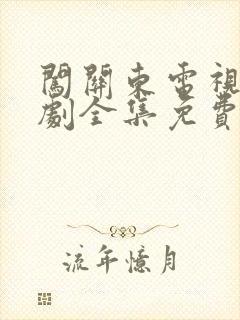 闖關東電視
劇全集免費
流年憶月